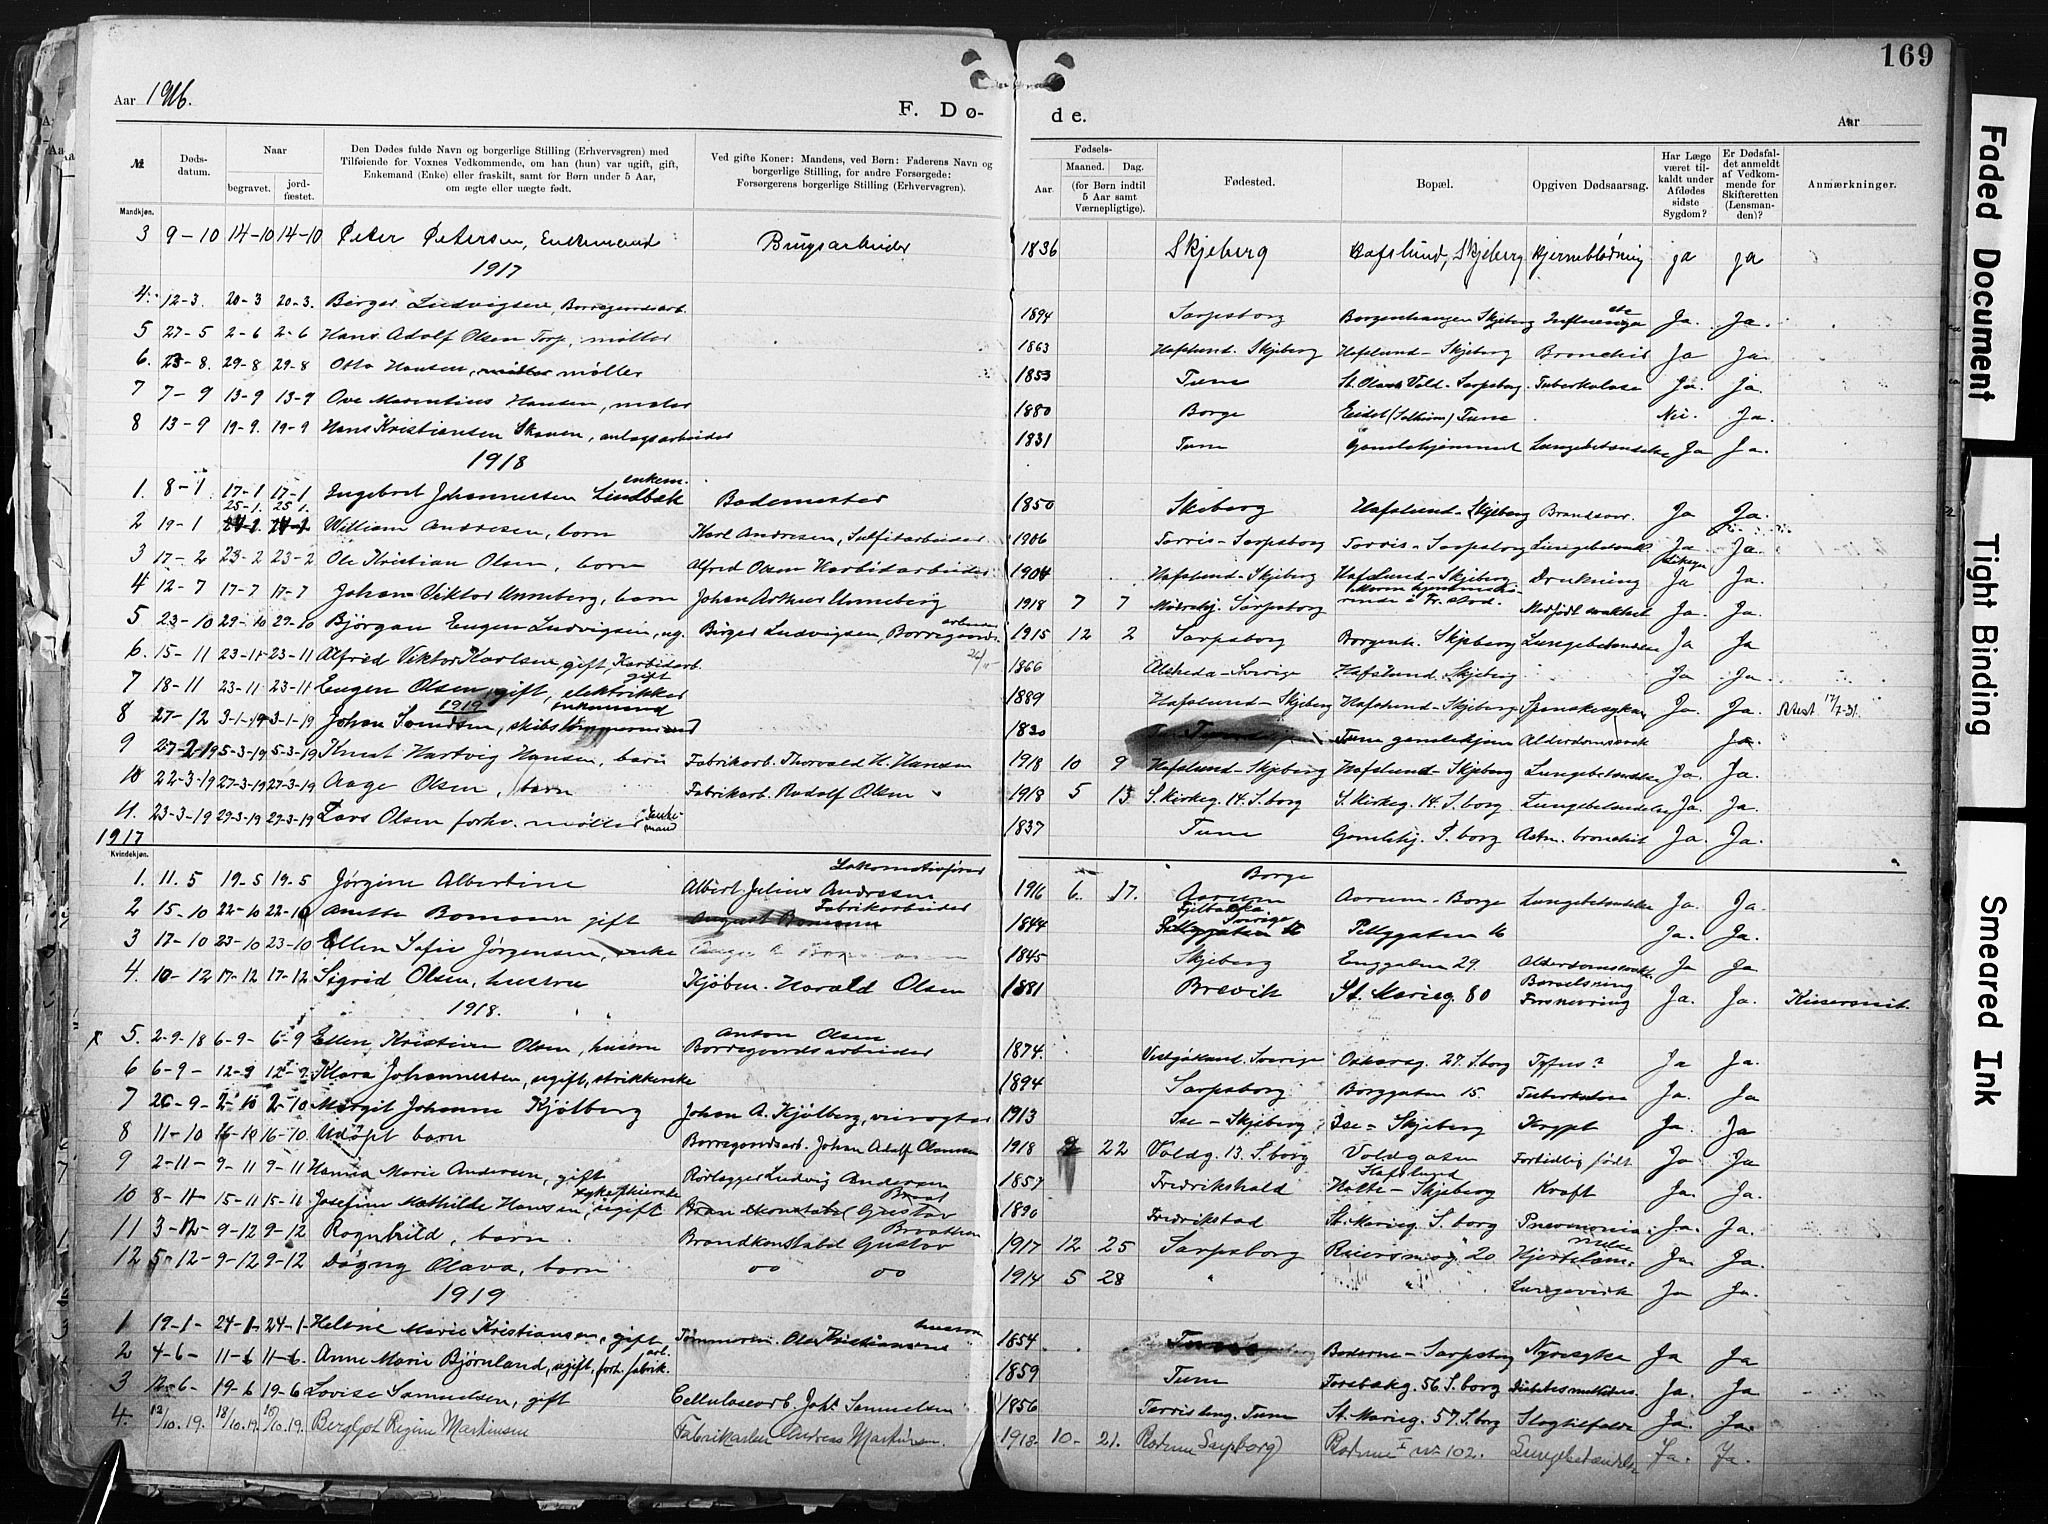 169
Aar 1916.
F. Dø-
de.
Aar
№
Døds-datum.
Naar
begravet.
jord-fæstet.
Den Dødes fulde Navn og borgerlige Stilling (Erhvervsgren) med
Tilføiende for Voxnes Vedkommende, om han (hun) var ugift, gift,
Enkemand (Enke) eller fraskilt, samt for Børn under 5 Aar,
om ægte eller uægte født.
Ved gifte Koner: Mandens, ved Børn: Faderens Navn og
borgerlige Stilling, for andre Forsørgede:
Forsørgerens borgerlige Stilling (Erhvervsgren).
Fødsels-
Aar
Maaned.
Dag.
(for Børn indtil
5 Aar samt
Værnepligtige).
Fødested.
Bopæl.
Opgiven Dødsaarsag.
Har Læge
været til-
kaldt under
Afdødes
sidste
Sygdom?
Er Dødsfal-
det anmeldt
af Vedkom-
mende for
Skifteretten
(Lensman-
den)?
Anmærkninger.
Mandkjøn.
3 9-10 14-10 14-10 Peter Petersen, Enkemand Brugsarbeider 1836 Skjeberg Hafslund, Skjeberg Hjerneblødning ja ja
1917
4. 12-3. 20-3 20-3. Birger Ludvigsen, Borregaardsarb. 1894 Sarpsborg Borgenhaugen Skjeberg Influenza Ja. Ja.
5 27-5 2-6 2-6 Hans Adolf Olsen Torp, møller 1863 Hafslund. Skjeberg Hafslund-Skjeberg Bronchit Ja Ja.
6. 23-8. 29-8 29-8 Otto Hansen, møller 1853 Tune St. Olavs Vold-Sarpsborg Tuberkulose Ja. Ja.
7 7-9 13-9 13-9 Ove Marentius Hansen, maler 1880 Borge Eidet (Solheim) Tune Nei. Ja.
8 13-9 19-9. 19-9 Hans Kristiansen Skaven, anlægsarbeider 1831 Tune Gamlehjemmet Lungebetændelse Ja Ja.
1918
1. 8-1 17-1 17-1 Ingebret Johannessen Lindbæk enkem. Bademester 1850 Skjeberg Hafslund-Skjeberg Brandsaar. Ja Ja.
25-1. 25 1.
2 19-1 William Andresen, barn Karl Andresen, Sulfitarbeider 1906 Torris-Sarpsborg Torris-Sarpsborg Lungebetænd. Ja Ja.
3 17-2 23-2 23-2 Ole Kristian Olsen, barn Alfred Olsen Karbidarbeider 1904 Hafslund-Skjeberg Hafslund-Skjeberg Drukning Ja Ja.
4 12-7 17-7 17-7 Johan Viktor Unneberg, barn Johan Arthur Unneberg 1918 7 7 Sarpsborg Medfødt svakhet Ja. Ja.
5 23-10 29-10 29-10 Bjørgan Eugen Ludvigsen, ug. Birger Ludvigsen, Borregaards- arbeider 1915 12 2 Sarpsborg Borgenh. Skjeberg Lungebetændelse Ja Ja
6. 15-11 23-11 23-11 Alfred Viktor Karlsen, gift, Karbidarb. 1866 Alsheda-Sverige Hafslund Skjeberg Ja Ja.
7 18-11 23-11 23-11 Eugen Olsen, gift, elektriker 1889 Hafslund-Skjeberg Hafslund-Skjeberg Spanskesyken Ja. Ja. Attest 17/7-31.
1919
8 27-12 3-1-19 3-1-19 Johan Samdsen, skibstømmermand enkemand 1830 Tune gamlehjem Alderdomssvak Ja.
9 27-2-19 5-3-19 5-3-19 Knut Hartvig Hansen, barn Fabrikarb. Thorvald H. Hansen 1918 10 9 Hafslund-Skjeberg Hafslund-Skjeberg Lungebetændelse Ja. Ja.
10 22-3-19 27-3-19 27-3-19 Aage Olsen, barn Fabrikarb. Rudolf Olsen 1918 5 13 S. Kirkeg. 14. S.borg S. Kirkeg. 14. S.borg Lungebetændelse Ja. Ja.
11. 23-3-19 29-3-19 29-3-19 Lars Olsen forhv. møller Enkemand 1837 Tune Gamlehj. S.borg Astm. bronchit Ja. Ja.
1917
Kvindekjøn.
1. 11. 5 19-5 19-5 Jørgine Albertine Albert Julius Andresen Lokomotivfører 1916 6. 17. Aarum Borge Aarum-Borge Lungebetændelse Ja. Ja.
2 15-10 22-10 22-10 Anette Bomann gift August Bomann Fabrikarbeider 1844 Fjelbacka. Sverige Pellygaten 16 Ja. Ja.
3 17-10 23-10 23-10 Ellen Sofie Jørgensen, enke 1845 Skjeberg Enggaten 29. Alderdomssvakh. Ja Ja
4. 10-12 17-12 17-12 Sigrid Olsen, hustru Kjøbm. Harald Olsen 1881 Brevik St. Marieg. 80 Barselsning Forskrevring Ja. Ja. Keisersnit.
1918.
x 5. 2-9-18 6-9- 6-9 Ellen Kristine Olsen, hustru Anton Olsen Borregaardsarbeider 1874. Vestgötland. Sverige Oskarsg. 27. S.borg Tyfus? Ja Ja
6 6-9- 12-9 12-9 Klara Johannessen, ugift, strikkerske 1894 Sarpsborg Borggaten 15. Tuberkulose Ja. Ja
7 26-9- 2-10 2-10 Margit Johanne Kjølberg Johan A. Kjølberg, veivogter 1913 Ise-Skjeberg Ise-Skjeberg Krypt Ja. Ja
8 11-10 16-10 16-10. Udøpt barn Borregaardsarb. Johan Adolf Olausen 1918 9 22 Voldg. 13. S.borg Voldgaten Fortidlig født Ja Ja
9 2-11- 9-11 9-11 Hanna Marie Andersen, gift Rørlægger Ludvig Andersen 1857 Fredrikshald Hafslund Holte-Skjeberg Kræft Ja. Ja.
10 8-11 15-11 15-11 Josefine Mathilde Hansen, ugift sykepleierske 1890 Fredrikstad St. Marieg. S.borg Pneumonia Ja. Ja.
11 3-12- 9-12 9-12 Ragnhild, barn. Brandkonstabel Gustav Braathen 1917 12 25 Sarpsborg Reiersmog 20 Hjertelam- melse Ja. Ja.
12 5-12- 9-12 9-12 Dagny Olava, barn oo oo 1914 5 28 " " Lungevirk Ja Ja.
1919
1 19-1- 24-1- 24-1- Helene Marie Kristiansen, gift Tømmerm. Ole Kristiansens hustru 1854 Tune Baderne-Sarpsborg Nyresyke Ja Ja
2 4-6- 11-6 11-6. Anne Marie Bjørnland, ugift, forh. fabrik. arb. 1859 Tune Torsbakg. 56 S.borg Diabetes mellitus. Ja. Ja
3 12-6- 19-6 19-6 Lovise Samuelsen, gift Cellulosearb. Joh. Samuelsen 1856 Torrisberg. Tune St. Marieg. 57 S.borg Slagtilfælde Ja. Ja.
4. 12/10.19. 18/10.19. 18/10.19. Bergljot Regine Martinsen Fabrikarbeider Andreas Martinsen. 1918- 10- 21. Roderne Sarpsborg Roderne I nr 102. Lungebetændelse Ja. Ja.
Faded Document
Tight Binding
Smeared Ink